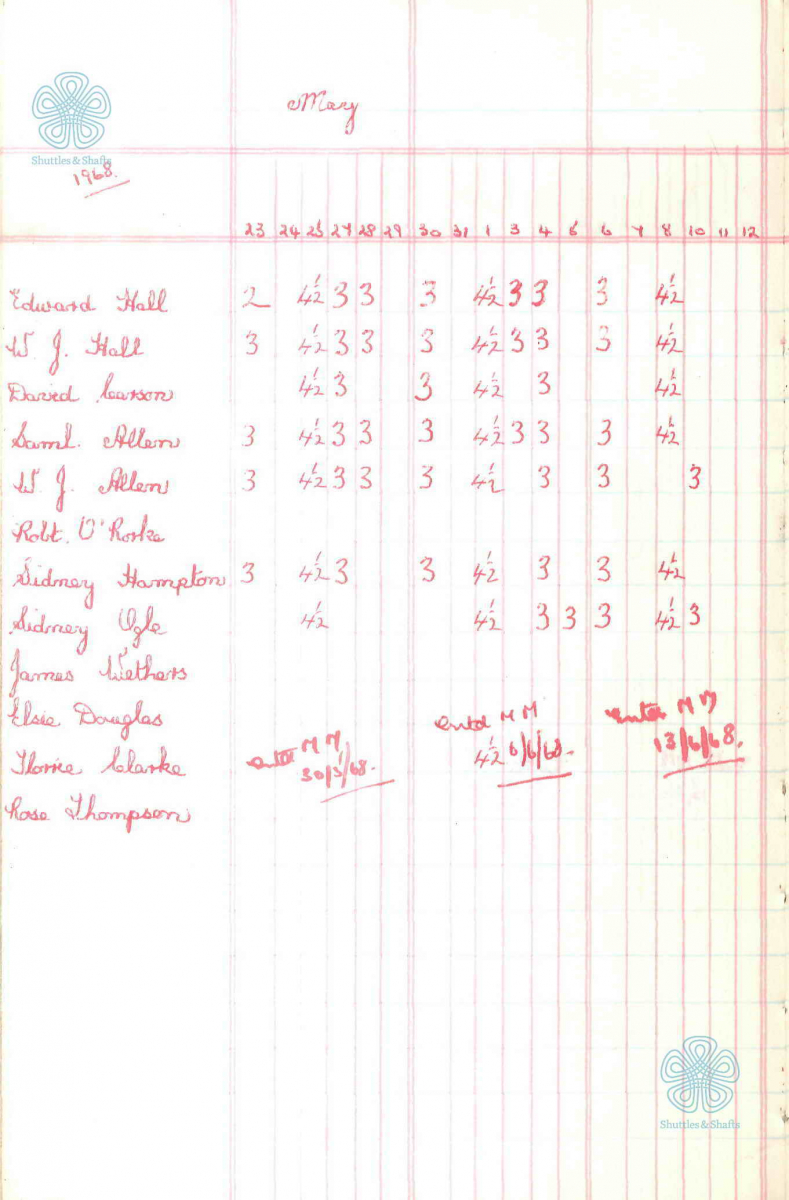 May
Shuttles & Shafts
1968.
23 24 25 27 28 29 30 31 1 3 4 5 6 7 8 10 11 12
Edward Hall 2 4½ 3 3 3 4½ 3 3 3 4½
W. J. Hall 3 4½ 3 3 3 4½ 3 3 3 4½
David Carson 4½ 3 3 4½ 3 4½
Saml. Allen 3 4½ 3 3 3 4½ 3 3 3 4½
W. J. Allen 3 4½ 3 3 3 4½ 3 3 3
Robt. O'Rorke
Sidney Hampton 3 4½ 3 3 4½ 3 3 4½
Sidney Ogle 4½ 4½ 3 3 3 4½ 3
James Wethers
Elsie Douglas entd M M M M
Florrie Clarke M M 4½ 6/6/68. 13/6/68.
30/5/68.
Rose Thompson
Shuttles & Shafts